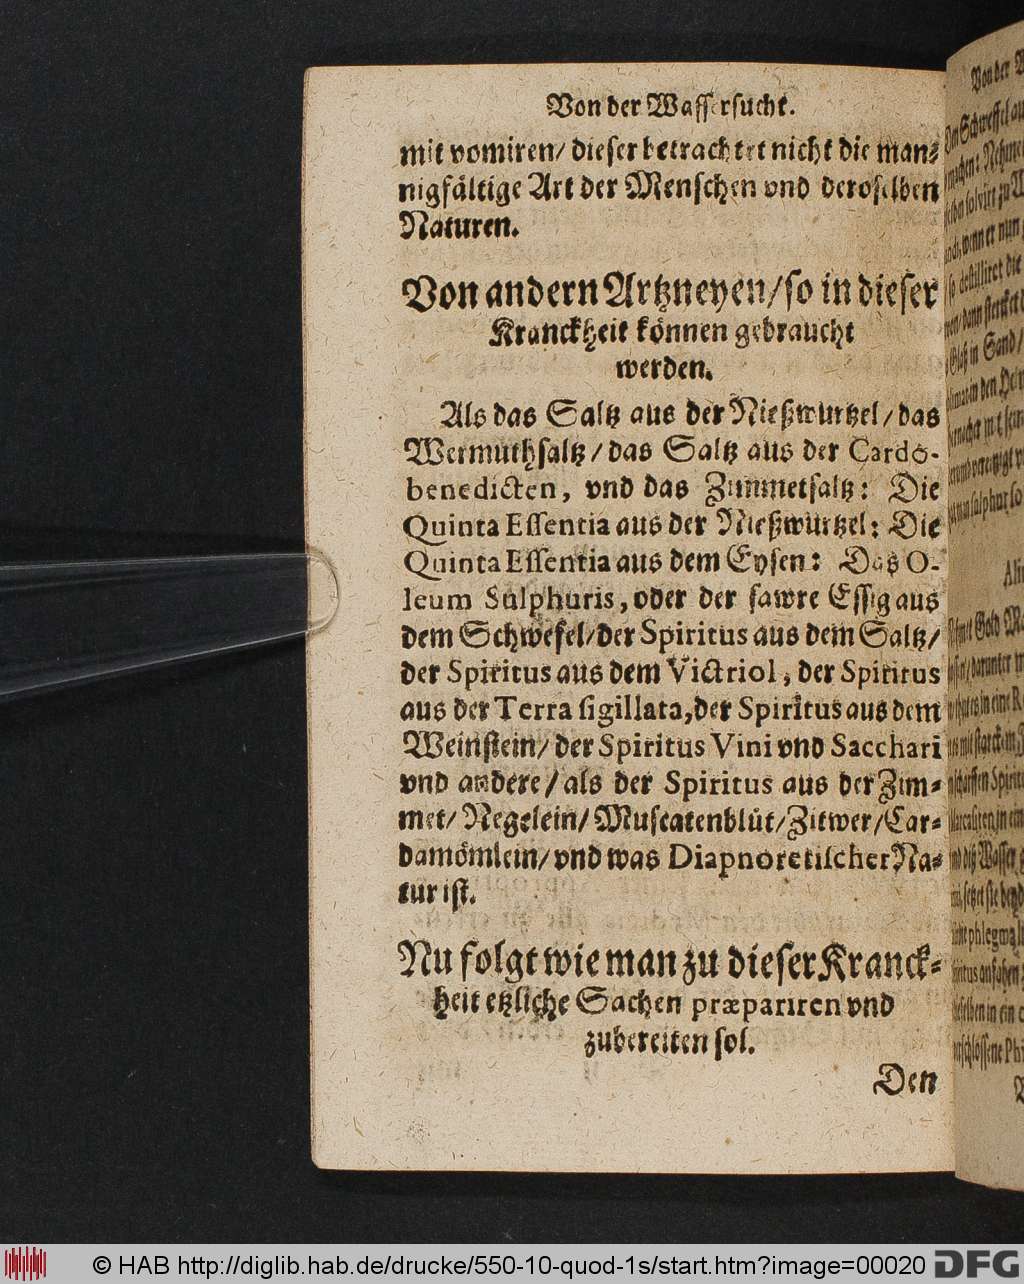 Von der Wassersucht.
mit vomiren/ dieser betrachtet nicht die man⸗
nigfältige Art der Menschen vnd deroselben
Naturen.
Von andern Artzneyen/ so in dieser
Kranckheit können gebraucht
werden.
Als das Saltz aus der Nießwurtzel/ das
Wermuthsaltz/ das Saltz aus der Cardo-
benedicten, vnd das Zimmetsaltz: Die
Quinta Essentia aus der Nießwurtzel: Die
Quinta Essentia aus dem Eysen: Das O-
leum Sulphuris, oder der sawre Essig aus
dem Schwefel/ der Spiritus aus dem Saltz/
der Spiritus aus dem Victriol, der Spiritus
aus der Terra sigillata, der Spiritus aus dem
Weinstein/ der Spiritus Vini vnd Sacchari
vnd andere/ als der Spiritus aus der Zim⸗
met/ Negelein/ Muscatenblüt/ Zitwer/ Car⸗
damömlein/ vnd was Diapnoretischer Na⸗
tur ist.
Nu folgt wie man zu dieser Kranck⸗
heit etzliche Sachen præpariren vnd
zubereiten sol.
Den
© HAB http://diglib.hab.de/drucke/550-10-quod-1s/start.htm?image=00020
DFG